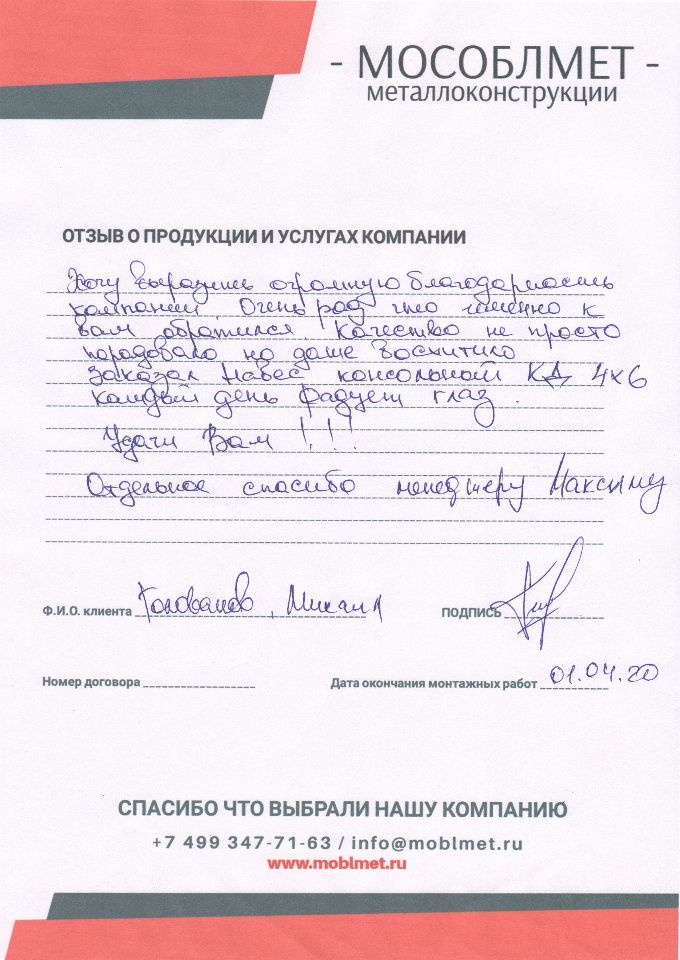 - МОСОБЛМЕТ -
металлоконструкции
ОТЗЫВ О ПРОДУКЦИИ И УСЛУГАХ КОМПАНИИ
Хочу выразить огромную благодарность
компании. Очень рад что именно к
вам обратился. Качество не просто
порадовало но даже восхитило
Заказал навес консольный КД 4х6
каждый день радует глаз.
Удачи Вам !!!
Отдельное спасибо менеджеру Максиму
Ф.И.О. клиента Голованов, Михаил ПОДПИСЬ
Номер договора Дата окончания монтажных работ 01.04.20
СПАСИБО ЧТО ВЫБРАЛИ НАШУ КОМПАНИЮ
+7 499 347-71-63 / info@moblmet.ru
www.moblmet.ru